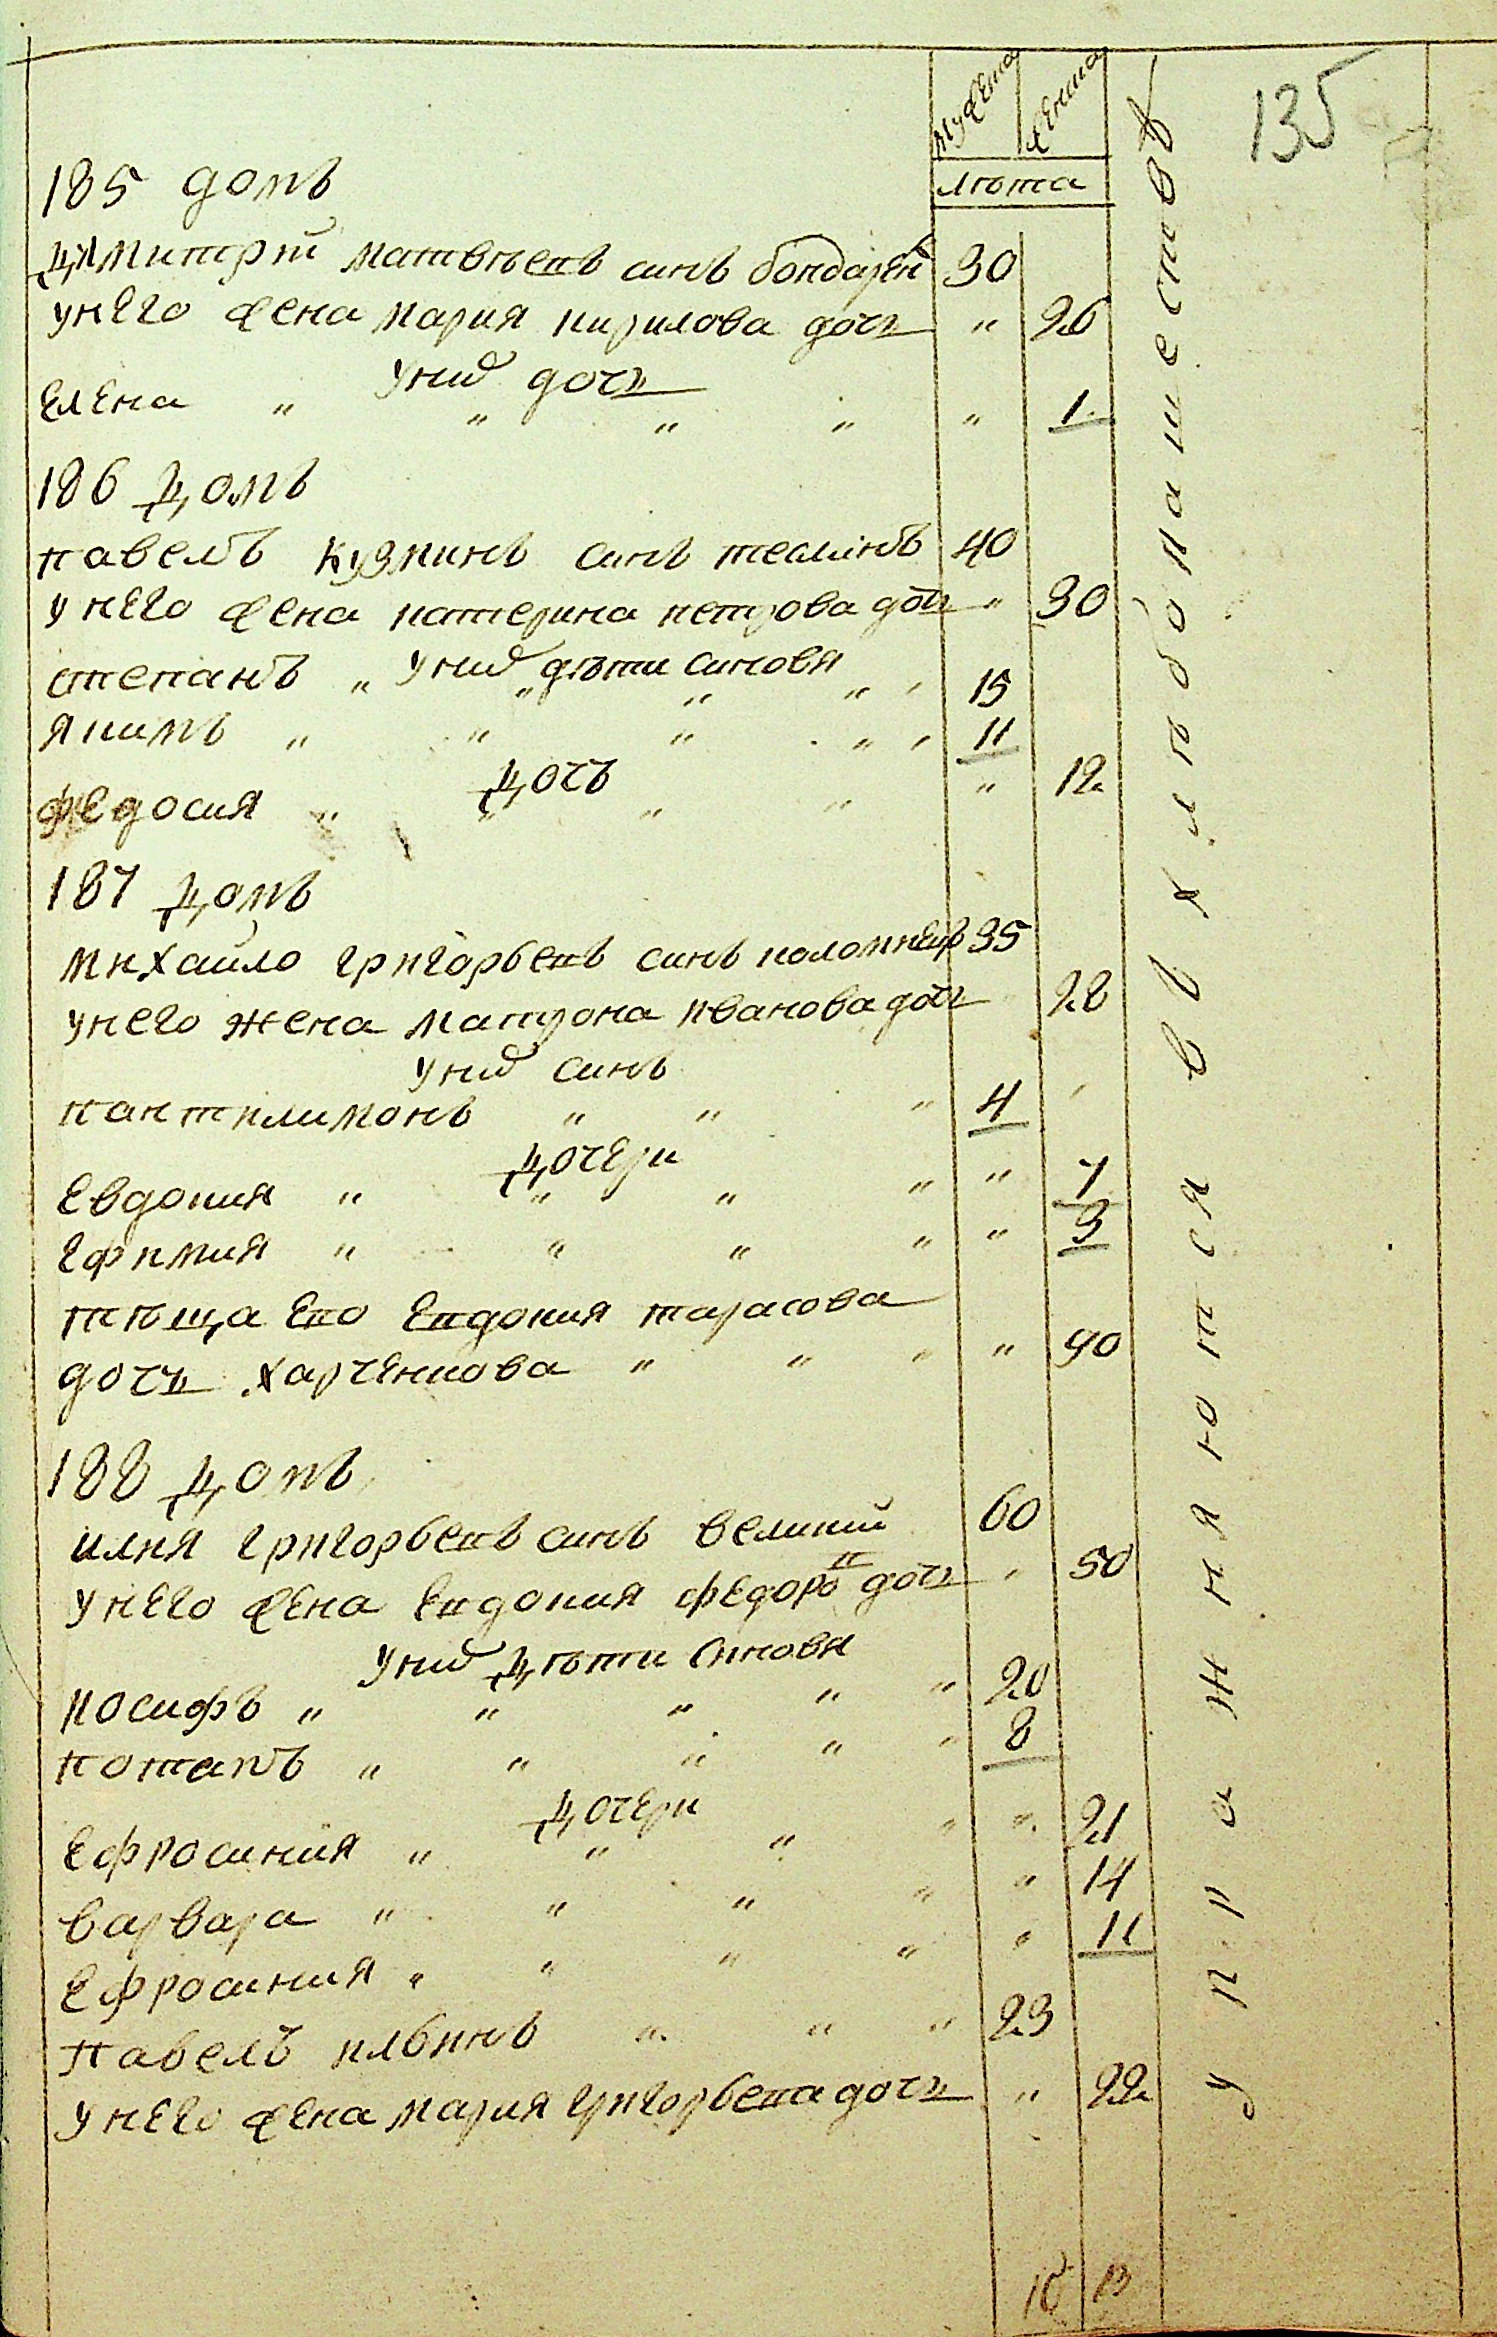 135
мужеска женска
лѣта
185 домъ
Димитрій матвѣевъ синъ бондарен 30
унего жена мария кирилова дочь " 26
уних дочь
Елена " " " " " 1
186 домъ
павелъ кузминъ синъ теслинъ 40
унего жена катерина петрова дочь " 30
уних дѣти синовя
степанъ " " " " 15
якимъ " " " " 11
дочъ
федосия " " " " " 12
187 домъ
михайло григорьевъ синъ коломиецъ 35
унего жена матрона иванова дочь " 28
уних синъ
пантилимонъ " " " 4
дочери
Евдокия " " " " " 7
Ефимия " " " " " 3
тѣща Его Евдокия тарасова
дочь харченкова " " " " 40
188 домъ
илия григорьевъ синъ великий 60
унего жена Евдокия федоров дочь " 50
уних дѣти синовя
иосифъ " " " " " 20
потапъ " " " " " 8
дочери
Ефросиния " " " " " 21
варвара " " " " " 14
Ефросиния " " " " " 11
павелъ ильинъ " " " 23
унего жена мария григорьева дочь " 22
10 13
упражняются в хлѣбопашествѣ